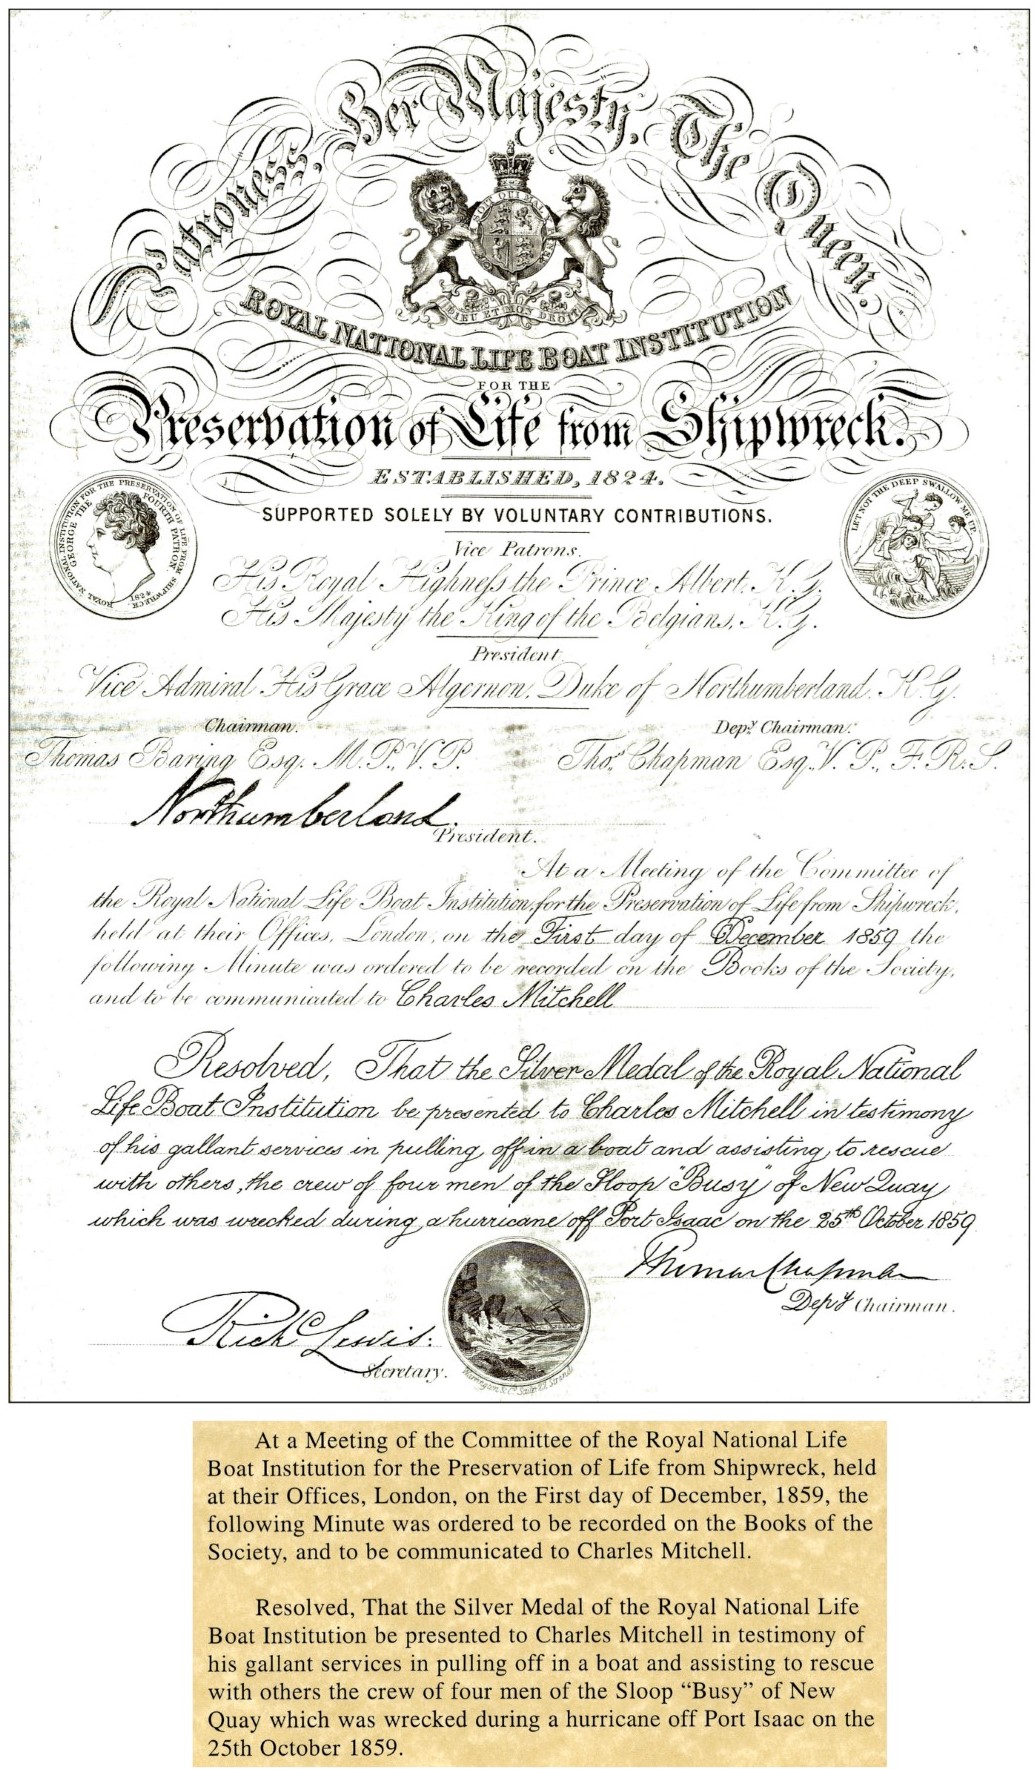 Patroness, Her Majesty, The Queen.
HONI SOIT QUI MAL Y PENSE
DIEU ET MON DROIT
ROYAL NATIONAL LIFE BOAT INSTITUTION
FOR THE
Preservation of Life from Shipwreck.
ESTABLISHED, 1824.
SUPPORTED SOLELY BY VOLUNTARY CONTRIBUTIONS.
ROYAL NATIONAL INSTITUTION FOR THE PRESERVATION OF LIFE FROM SHIPWRECK.
GEORGE THE FOURTH PATRON
1824
LET NOT THE DEEP SWALLOW ME UP.
Vice Patrons.
His Royal Highness the Prince Albert, K.G.
His Majesty the King of the Belgians, K.G.
President
Vice Admiral His Grace Algernon, Duke of Northumberland. K.G.
Chairman. Depy. Chairman.
Thomas Baring Esq. M.P., V.P. Thos. Chapman Esq. V.P., F.R.S.
Northumberland.
President.
At a Meeting of the Committee of
the Royal National Life Boat Institution, for the Preservation of Life from Shipwreck,
held at their Offices, London, on the First day of December 1859 the
following Minute was ordered to be recorded on the Books of the Society,
and to be communicated to Charles Mitchell
Resolved, That the Silver Medal of the Royal National
Life Boat Institution be presented to Charles Mitchell in testimony
of his gallant services in pulling off in a boat and assisting to rescue
with others, the crew of four men of the Sloop "Busy" of New Quay
which was wrecked during a hurricane off Port Isaac on the 25th October 1859
Thomas Chapman
Depy Chairman.
Richd Lewis.
Secretary.
At a Meeting of the Committee of the Royal National Life
Boat Institution for the Preservation of Life from Shipwreck, held
at their Offices, London, on the First day of December, 1859, the
following Minute was ordered to be recorded on the Books of the
Society, and to be communicated to Charles Mitchell.
Resolved, That the Silver Medal of the Royal National Life
Boat Institution be presented to Charles Mitchell in testimony of
his gallant services in pulling off in a boat and assisting to rescue
with others the crew of four men of the Sloop “Busy” of New
Quay which was wrecked during a hurricane off Port Isaac on the
25th October 1859.